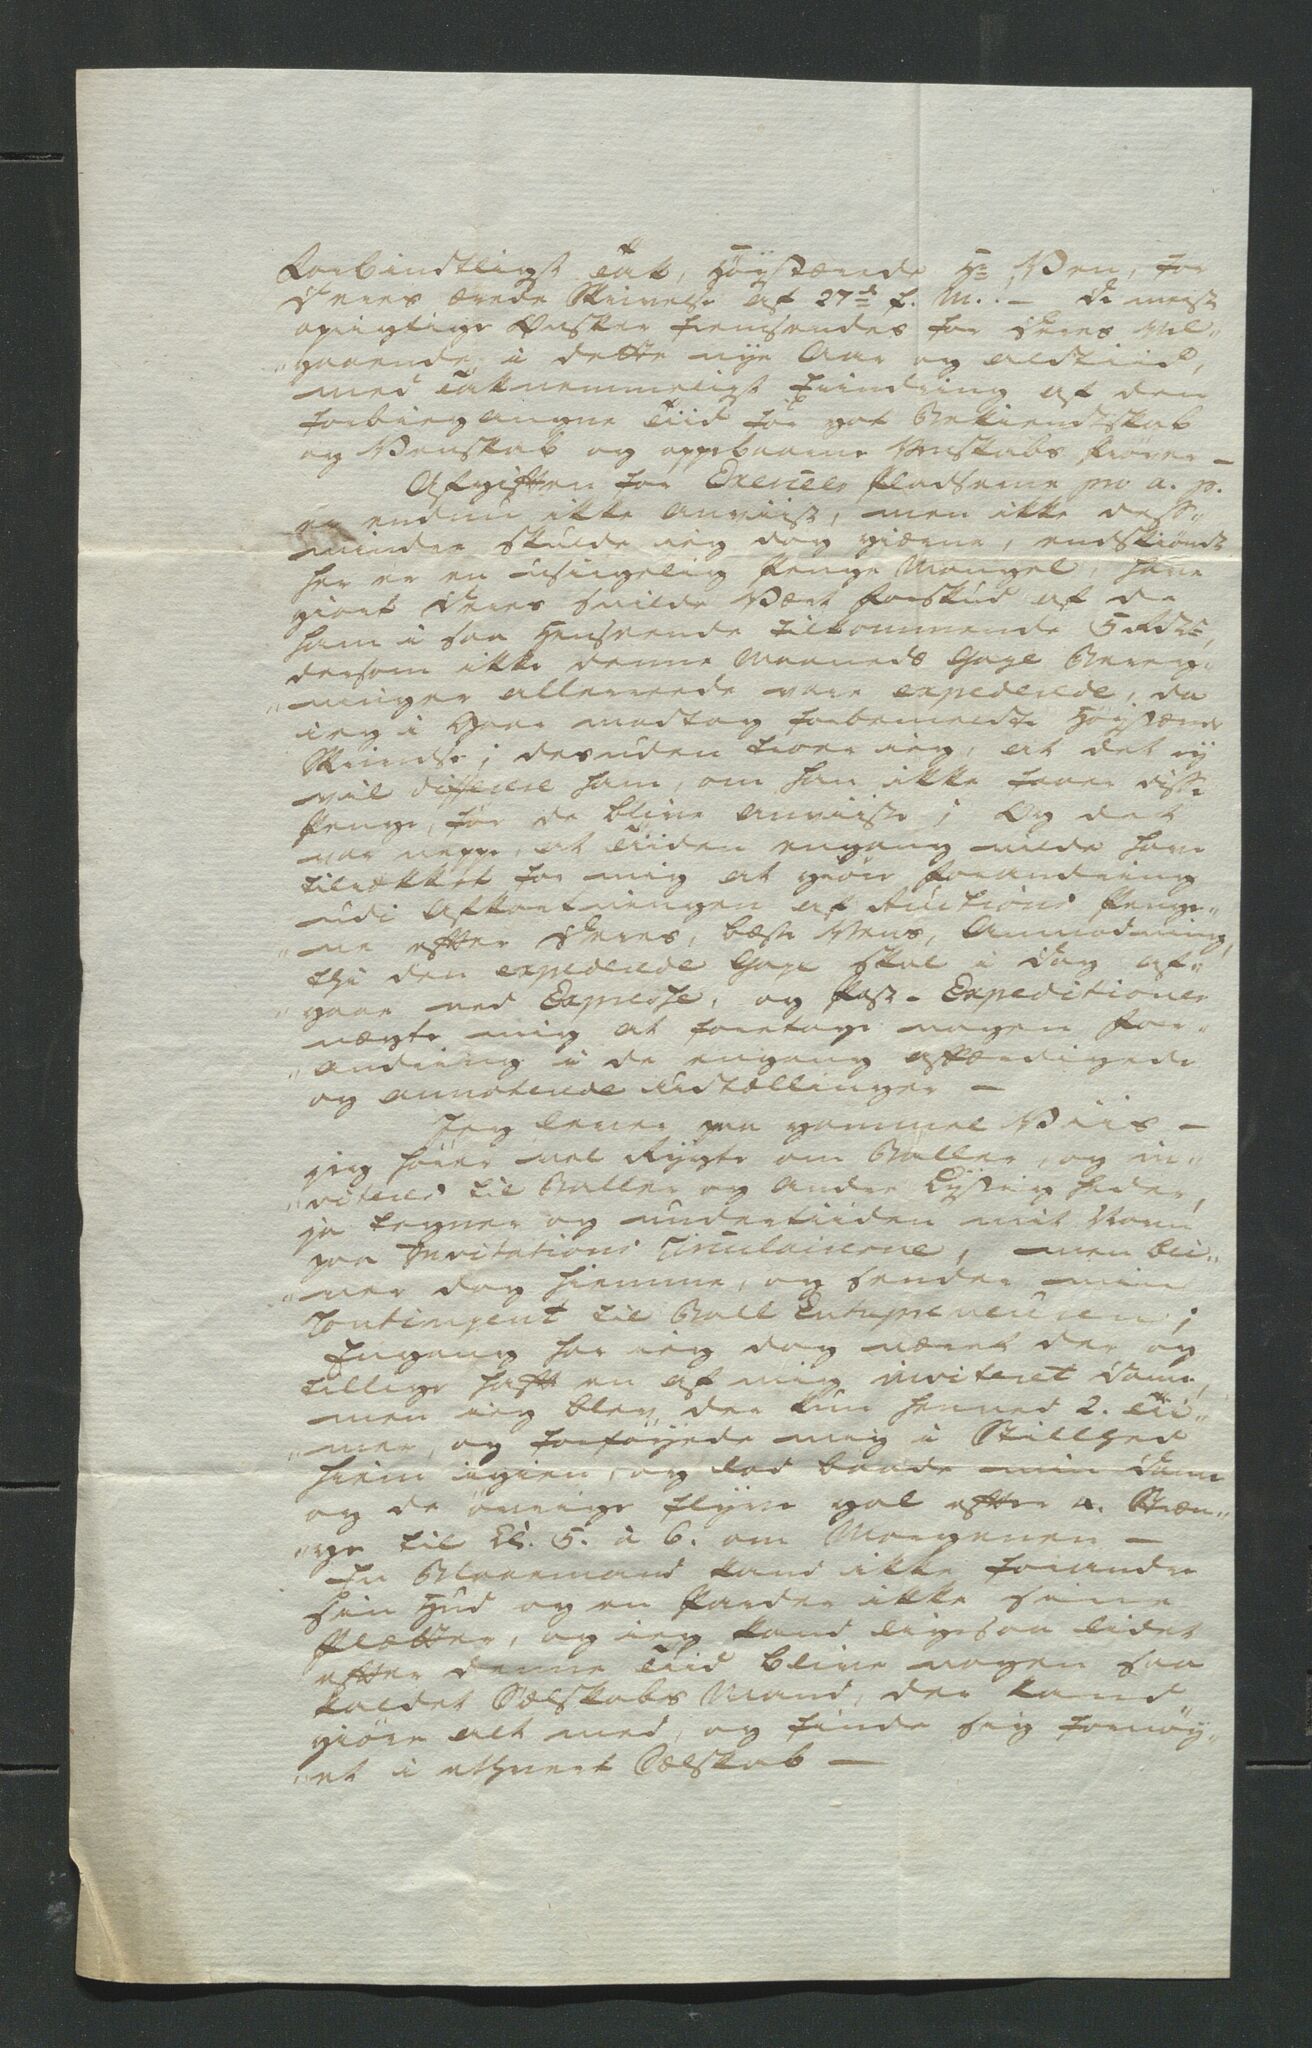 Forbindtligst Tak, Høystærede Hr. Ven, for
Deres ærede Skrivelse af 27de f. M. . — De meest
oprigtige Ønsker fremsendes for Deres Vel-
"gaaende i dette nye Aar og altiid,
med Taknemmeligst Erindring af den
forbiegangne Tiid for got Bekiendtskab
og Venskab og oppebaarne Venskabs Prøver —
Afgiften for Exerceer Pladserne pro a. p.
er endnu ikke anviist, men ikke dess-
mindre skulde ieg dog giærne, endskiøndt
her er en usigelig Penge Mangel, have
giort Deres snilde Vært Forskud af de
ham i saa Henseende tilkommende 5 Rdlr,
dersom ikke denne Maaneds Gage Bereg-
"ninger allereede vare expederede, da
ieg i Gaar modtog forbemeldte Høystærede
Skrivelse; desuden troer ieg, at det ey
vil differere ham, om han ikke faaer disse
Penge, før de blive anviiste; Og det
var neppe, at Tiden engang vilde have
tilrækket for mig at giøre Forandring
udi Afkortningen af Auctions Penge-
"ne efter Deres, bæste Vens, Anmodning,
thi den expederede Gage skal i Dag af-
"gaae med Expresse, og Post-Expeditionen
nægte mig at foretage nogen For-
"andring i de engang affærdigede
og annoterede Udtællinger —
Jeg lever paa gammel Viis —
jeg hører vel Rygte om Baller, og in-
"viteres til Baller og andre Lystigheder,
ja tegner og undertiiden mit Navn
paa Invitations Circulairerne, men bli-
"ver dog hiemme, og sender min
Contingent til Ball Entrepreneuren;
Engang har ieg dog været der og
tillige haft en af mig inviteret Dame,
men ieg blev der kun henved 2. Ti-
"mer, og forføyede mig i Stillhed
hiem igien, og lod baade min Dame
og de øvrige flyve gal efter 4. Stræn-
"ge til Kl. 5. à 6. om Morgenen —
En Blaaemand kand ikke forandre
sin Hud og en Parder ikke sine
Plætter, og ieg kand ligesaa lidet
efter denne Tiid blive nogen saa
kaldet Selskabs Mand, der kand
giøre alt med, og finde sig fornøy-
"et i ethvert Selskab —